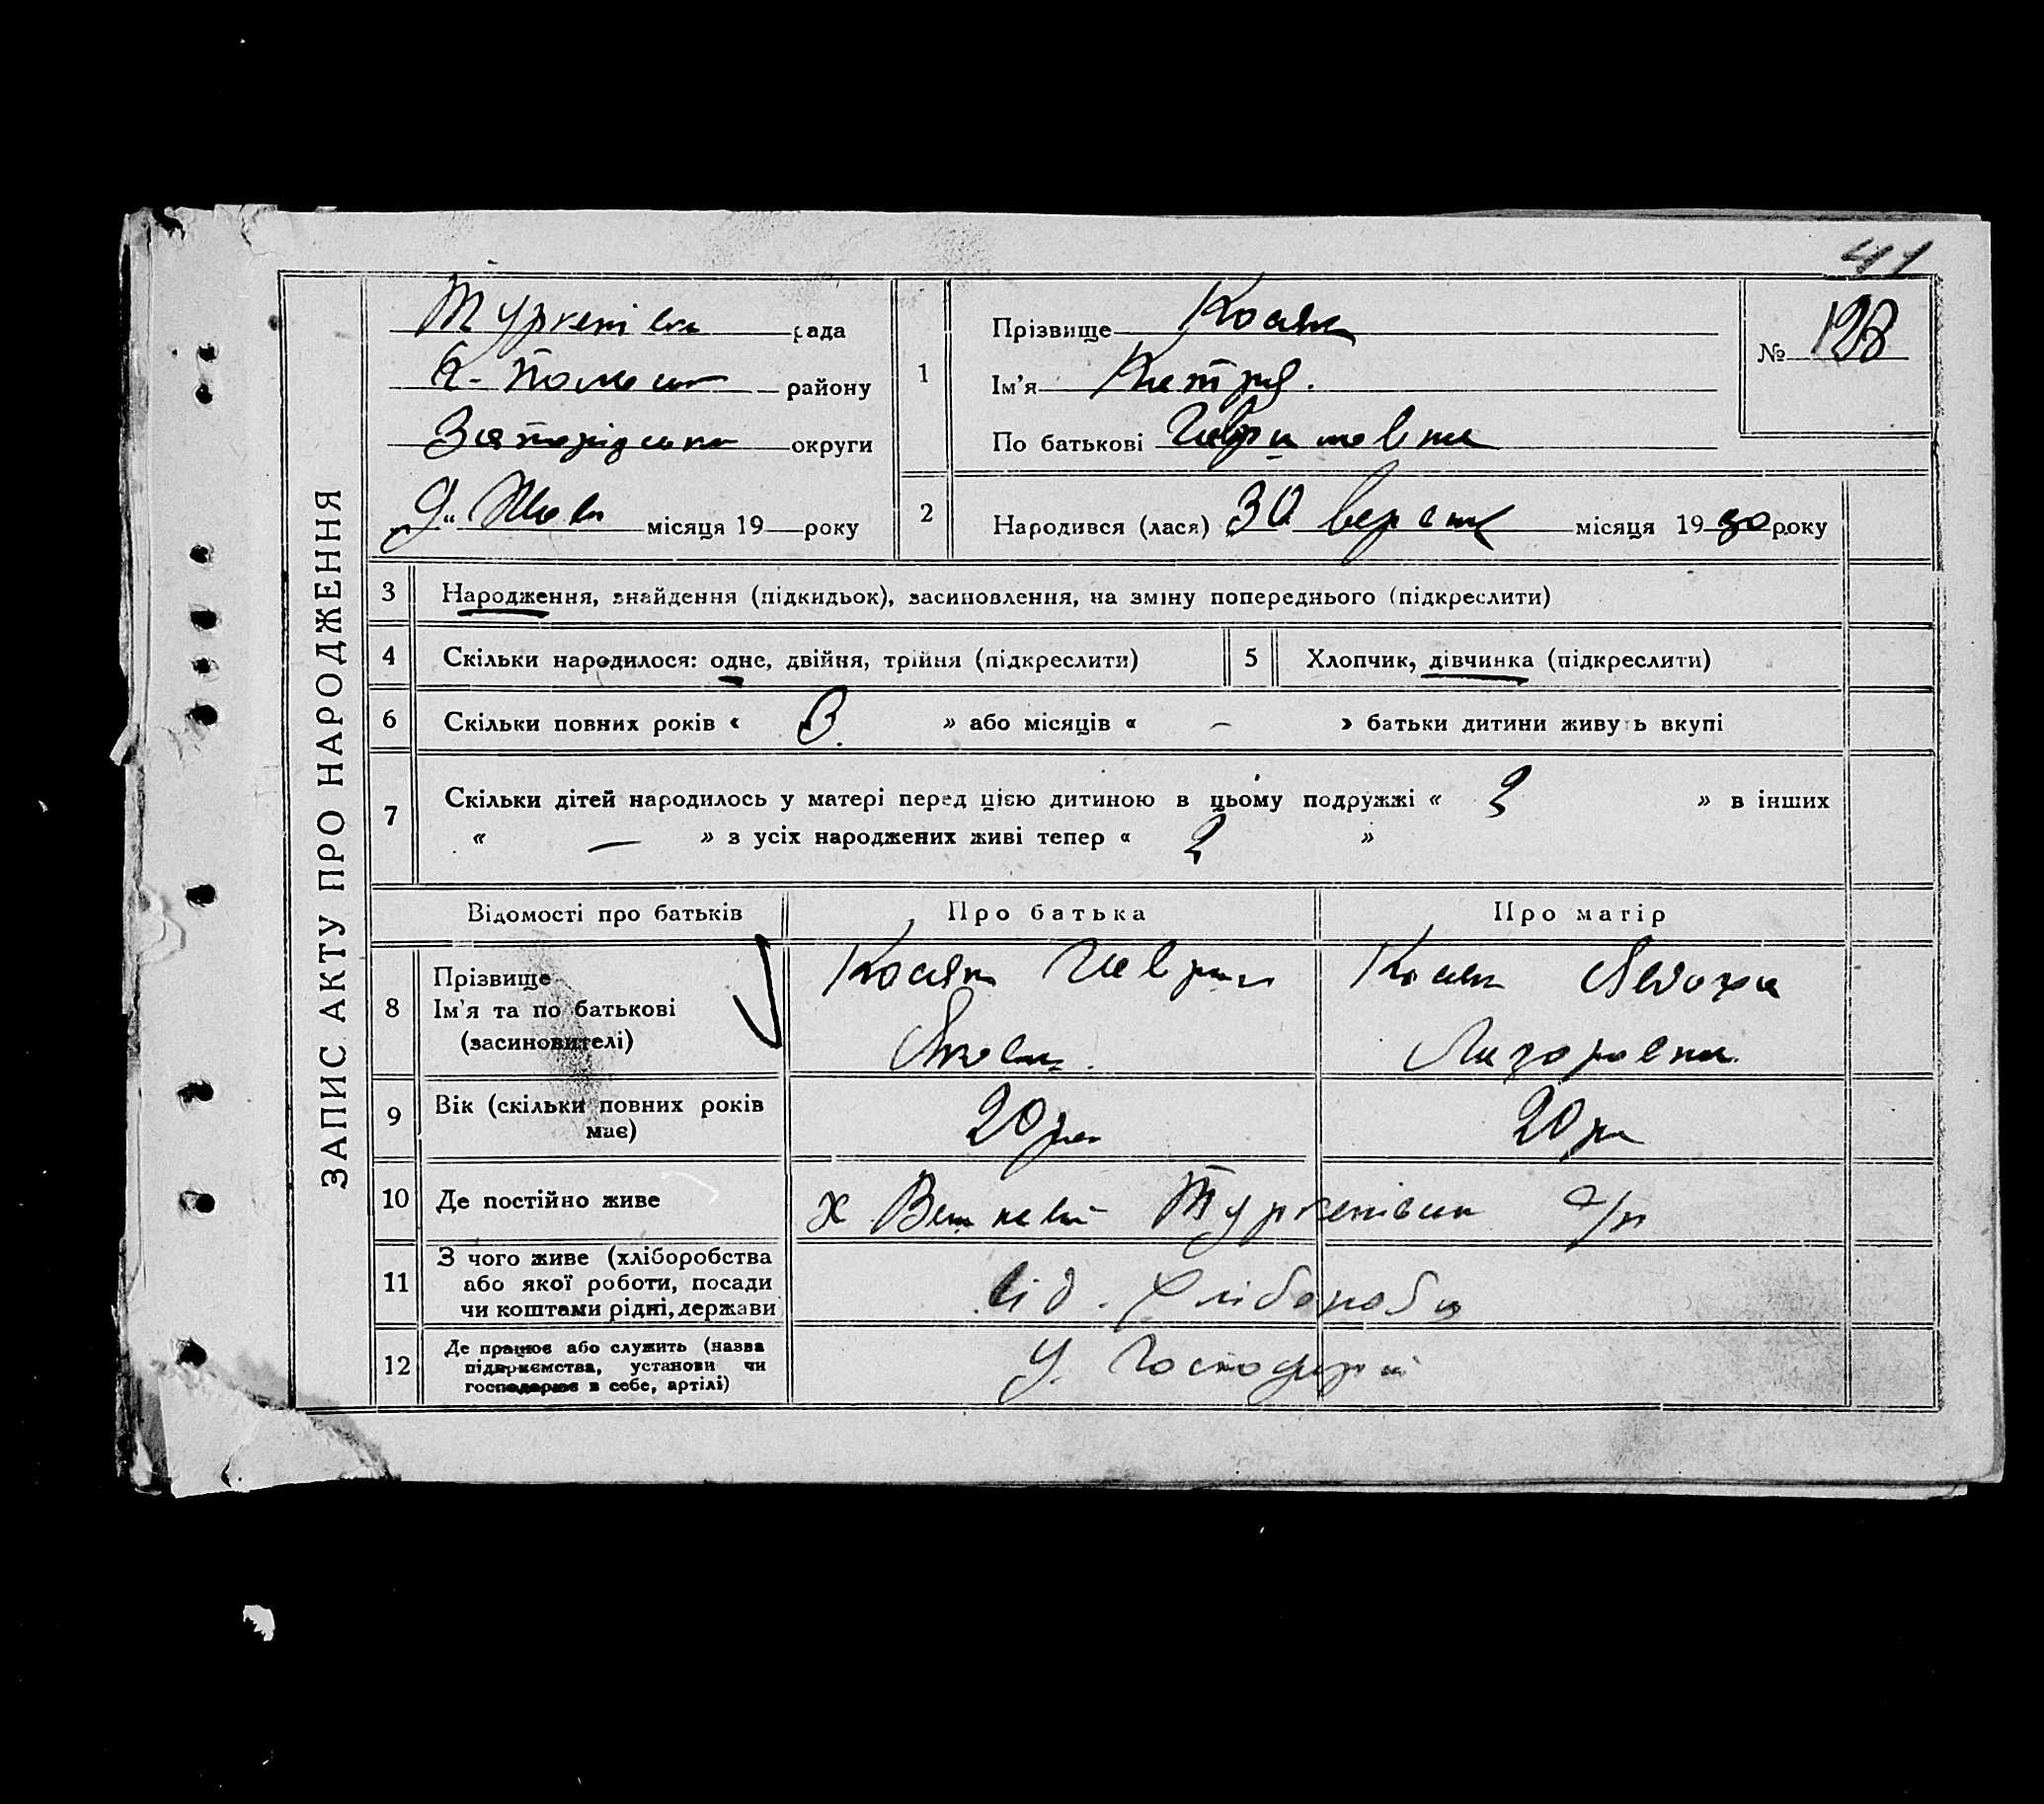 41
ЗАПИС АКТУ ПРО НАРОДЖЕННЯ
рада
району
округи
9 " Жов місяця 19 року
1
Прізвище Косяк
Ім'я
По батькові
№ 128
2
Народився (лася) 30 верес місяця 1930 року
3 Народження, знайдення (підкидьок), засиновлення, на зміну попереднього (підкреслити)
4 Скільки народилося: одне, двійня, трійня (підкреслити)
5 Хлопчик, дівчинка (підкреслити)
6 Скільки повних років « 3 » або місяців « – » батьки дитини живуть вкупі
7 Скільки дітей народилось у матері перед цією дитиною в цьому подружжі « 2 » в інших
« — » з усіх народжених живі тепер « 2 »
Відомості про батьків
Про батька
Про матір
8 Прізвище
Ім'я та по батькові
(засиновителі)
Косяк Гаврил
Косяк
Лазаровна
9 Вік (скільки повних років
має)
20 рок
20 рок
10 Де постійно живе
х с/р
11 З чого живе (хліборобства
або якої роботи, посади
чи коштами рідні, держави
від. хлібороба
12 Де працює або служить (назва
підприємства, установи чи
господарює в себе, артілі)
У. господарстві